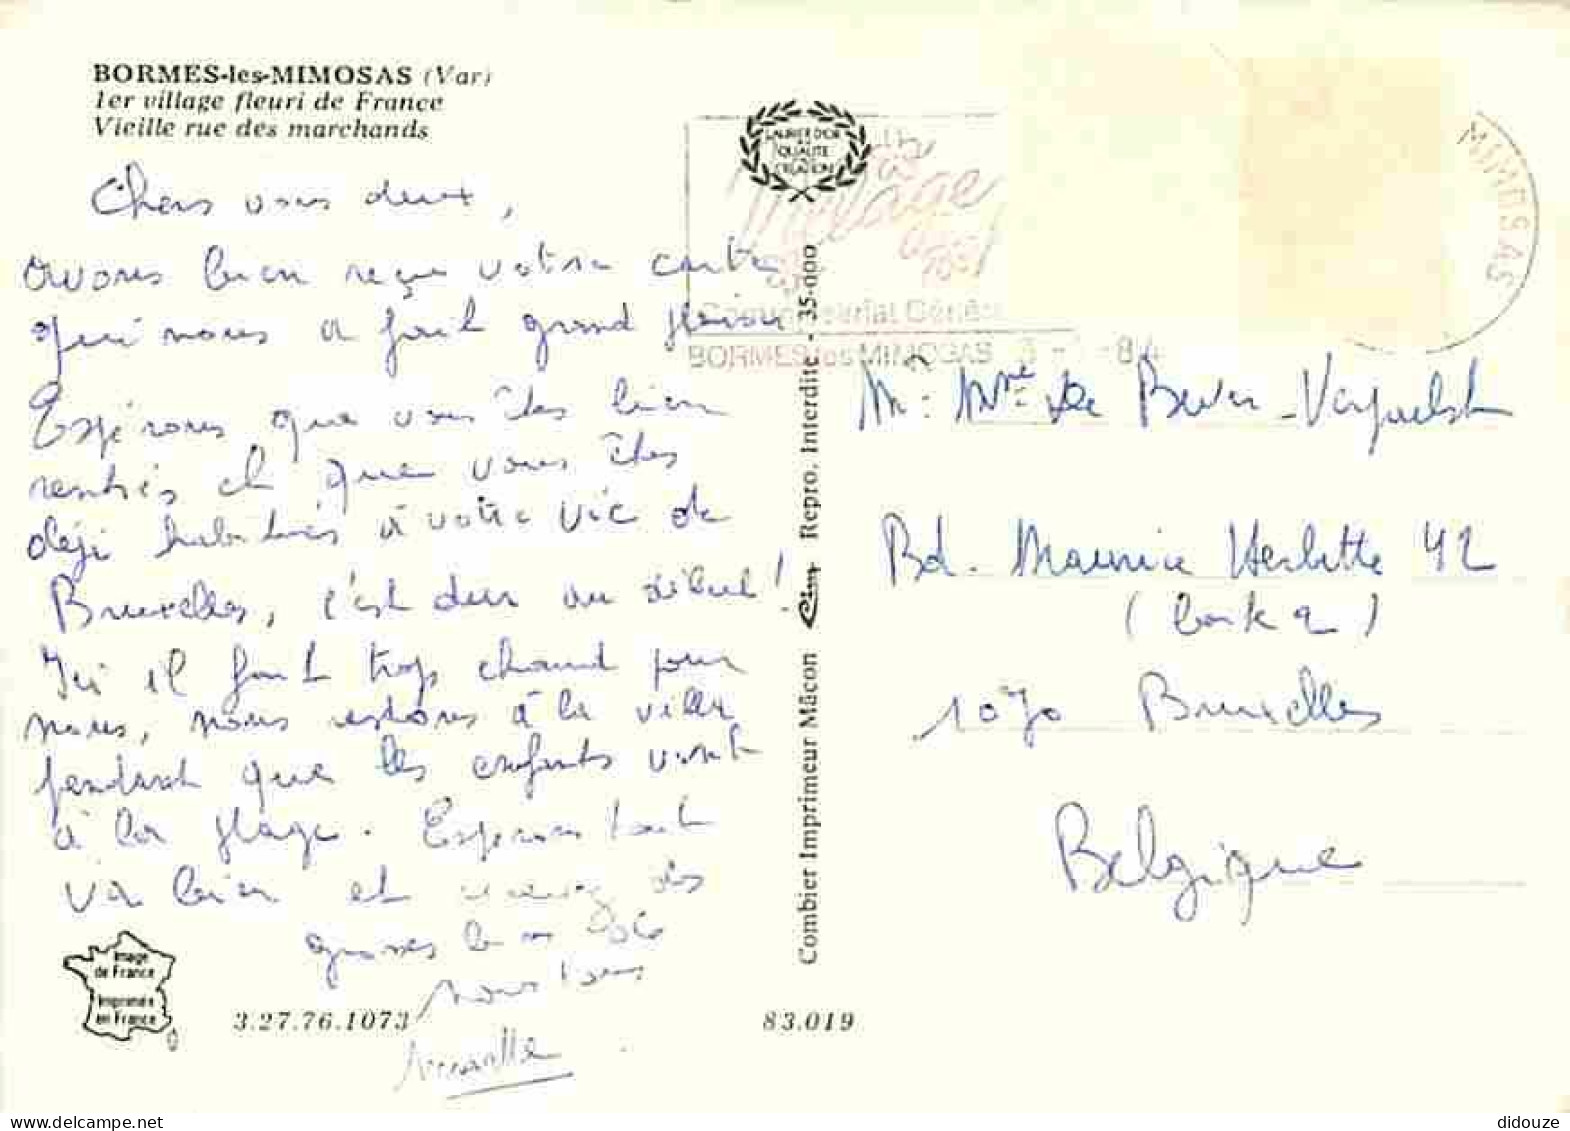 BORMES-les-MIMOSAS (Var)
1er village fleuri de France
Vieille rue des marchands
Chers vous deux,
avons bien reçu votre carte
qui nous a fait grand plaisir
Espérons que vous êtes bien
rentrés et que vous êtes
déjà habitués à votre vie de
Bruxelles, c'est dur au début!
Ici il fait trop chaud pour
nous, nous restons à la villa
pendant que les enfants vont
à la plage. Espérons tout
va bien et des
grosses
nous tous
LAURIER D'OR
QUALITE
CREATION
village
BORMES les MIMOSAS
MIMOSAS
Combier Imprimeur Mâcon Cim Repro. Interdite - 35-000
M. Mme De Bever-Verquelst
Bd. Maurice Herbette 42
1070 Bruxelles
Belgique
Image
de France
Imprimée
en France
3.27.76.1073
83.019
delcampe.net
didouze